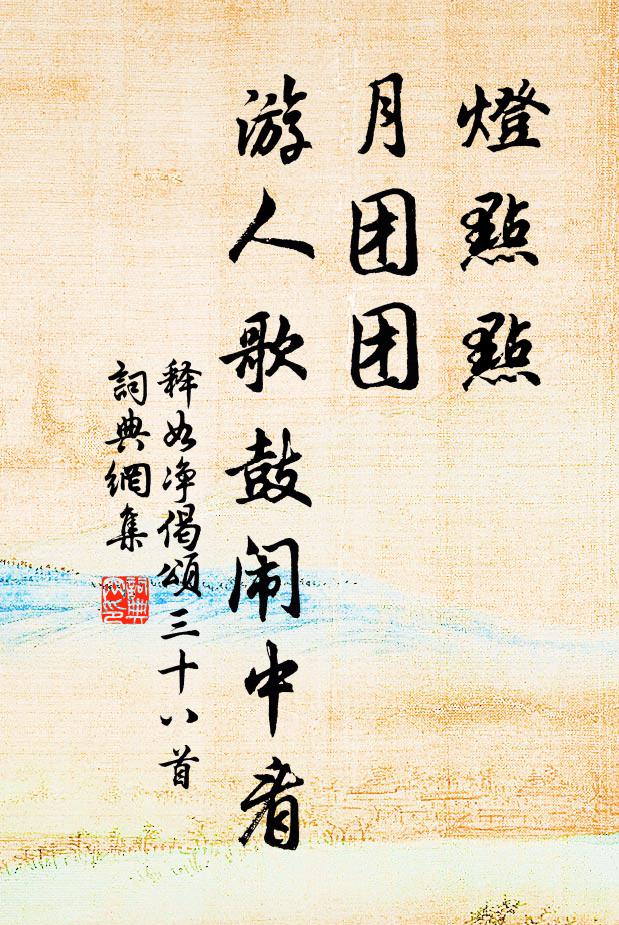 燈點點
月团团
游人歌鼓闹中看
释如净偈颂三十八首
詞典網集